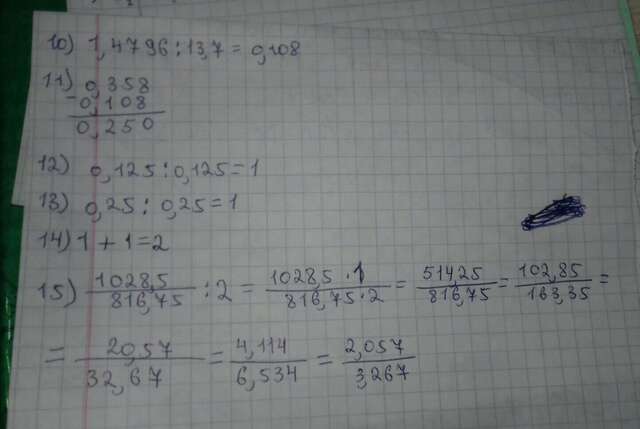 10) 1,4796 : 13,7 = 0,108
11) 0,358
- 0,108
0,250
12) 0,125 : 0,125 = 1
13) 0,25 : 0,25 = 1
14) 1 + 1 = 2
15) 1028,5 / 816,75 : 2 = 1028,5 · 1 / 816,75 · 2 = 514,25 / 816,75 = 102,85 / 163,35 =
= 20,57 / 32,67 = 4,114 / 6,534 = 2,057 / 3,267